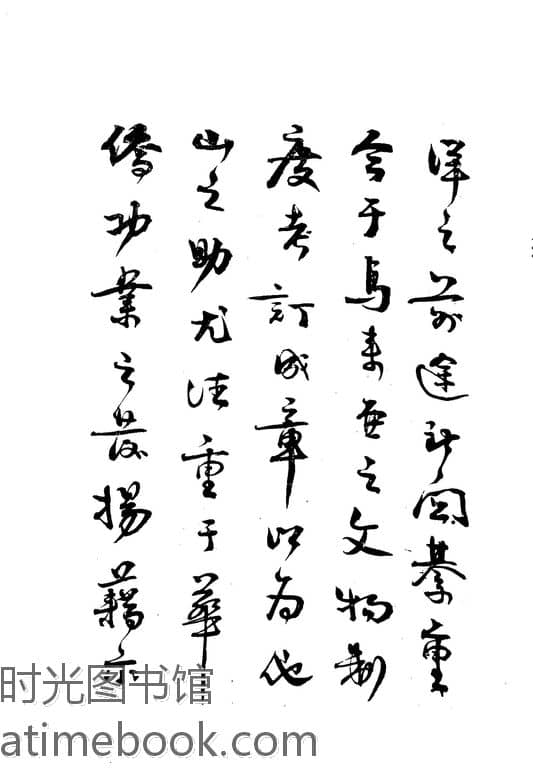 洋之前途所關綦重
于馬来亞之文物制
度考訂成章以為他
山之助尤注重于華
僑功業之發揚藉示
时光图书馆
atimebook.com